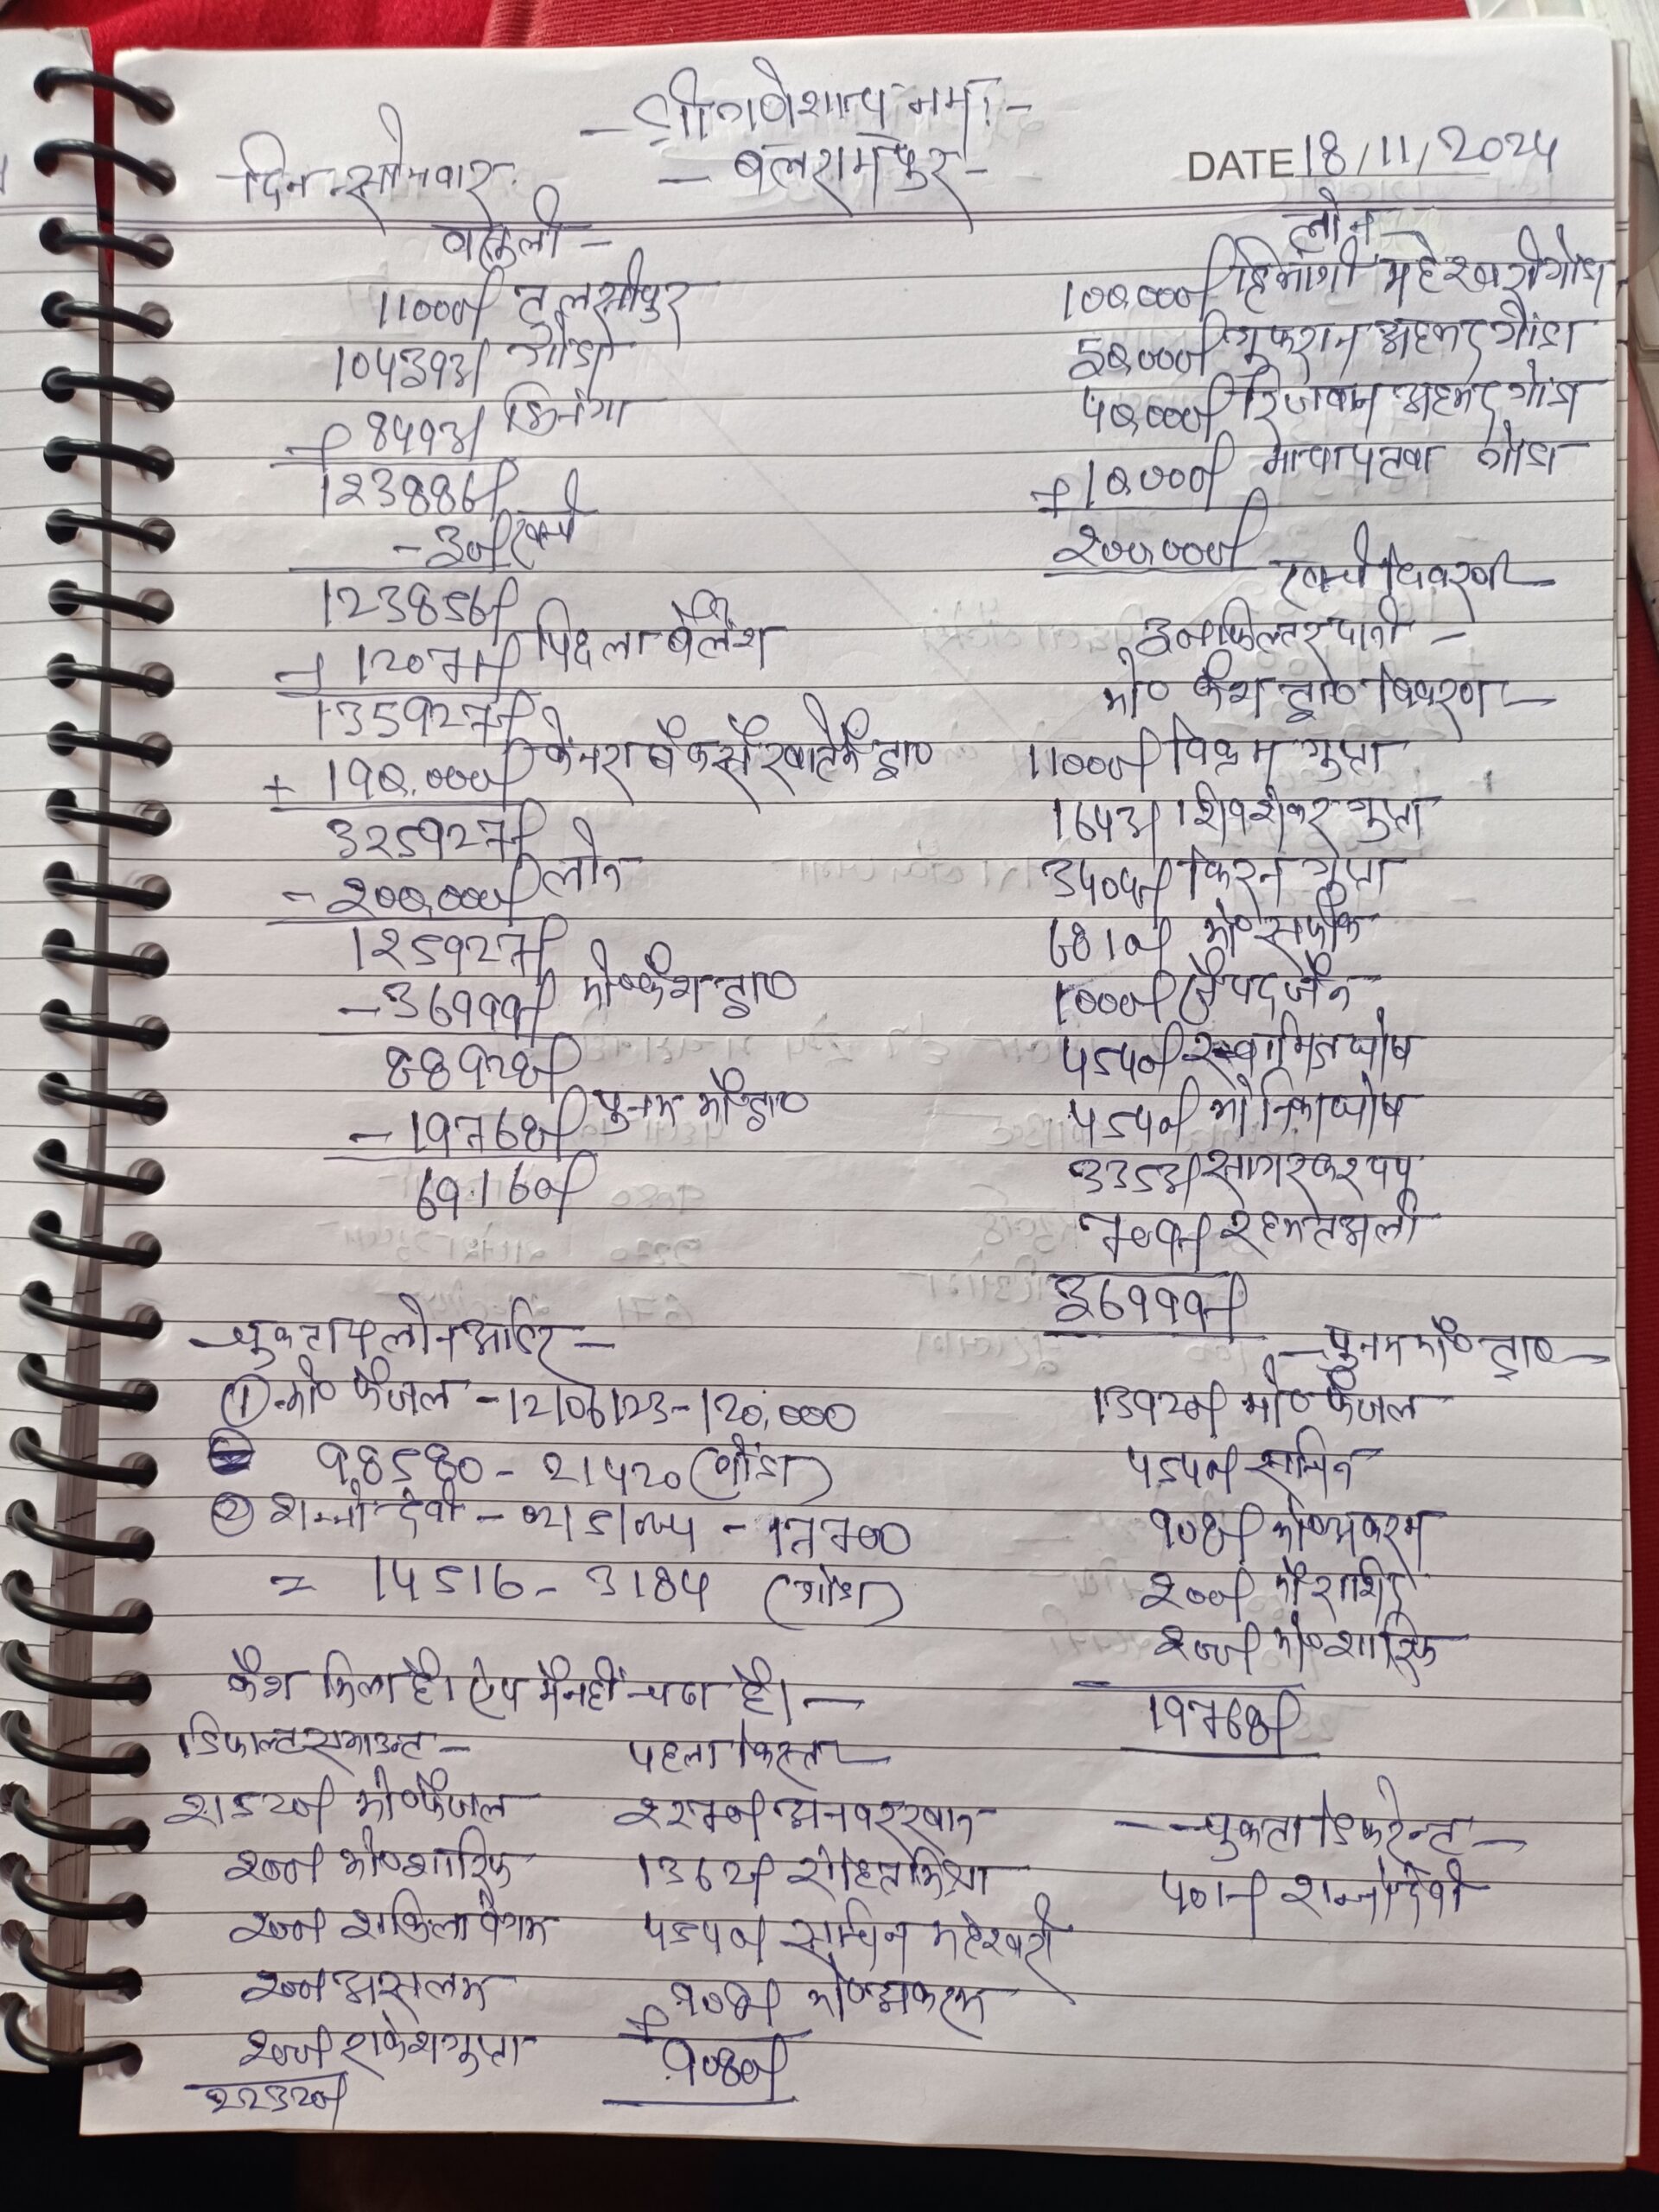 - श्री गणेशाय नमः -
- बलरामपुर -
दिन - सोमवार
DATE 18/11/2024
वसूली -
11000/ तुलसीपुर
104393/ गोंडा
+ 8493/ भिनगा
123886/
- 30/ खर्च
123856/
+ 12071/ पिछला बैलेंश
135927/
+ 190,000/ केनरा बैंक से खाते में ट्रा०
325927/
- 200,000/ लोन
125927/
- 36999/ मो० कैश ट्रा०
88928/
- 19768/ पुनम मो० ट्रा०
69160/
लोन -
100,000/ हिमांशी महेश्वरी गोंडा
50,000/ गुफरान अहमद गोंडा
40,000/ रिजवान अहमद गोंडा
+ 10,000/ माया पटवा गोंडा
200,000/
खर्च विवरण -
30/ फिल्टर पानी -
मो० कैश ट्रा० विवरण -
11000/ विक्रम गुप्ता
1643/ शिवशंकर गुप्ता
3404/ किरन गुप्ता
6810/ मो० सफीक
1000/ जैन
4540/ स्वामित घोष
4540/ मोनिका घोष
3353/ सागर कश्यप
709/ रहमत अली
36999/
- चुकता लोन आदि -
① मो० फैजल - 12/06/23 - 120,000
98580 - 21420 (गोंडा)
② शन्नो देवी - - 17700
= 14516 - 3184 (गोंडा)
- पुनम मो० ट्रा० -
13920/ मो० फैजल
4540/ सचिन
908/ मो० अकरम
200/ मो० राशिद
200/ मो० शारिफ
19768/
कैश मिला है। ऐप में नहीं चढा है। -
डिफाल्ट एमाउन्ट -
21520/ मो० फैजल
200/ मो० शारिफ
200/ शकिला बेगम
200/ असलम
200/ राकेश गुप्ता
22320/
पहला किस्त -
2270/ अनवर खान
1362/ रोहित मिश्रा
4540/ सचिन महेश्वरी
+ 908/ मो० अकरम
9080/
- चुकता डिफरेन्ट -
401/ शन्नो देवी